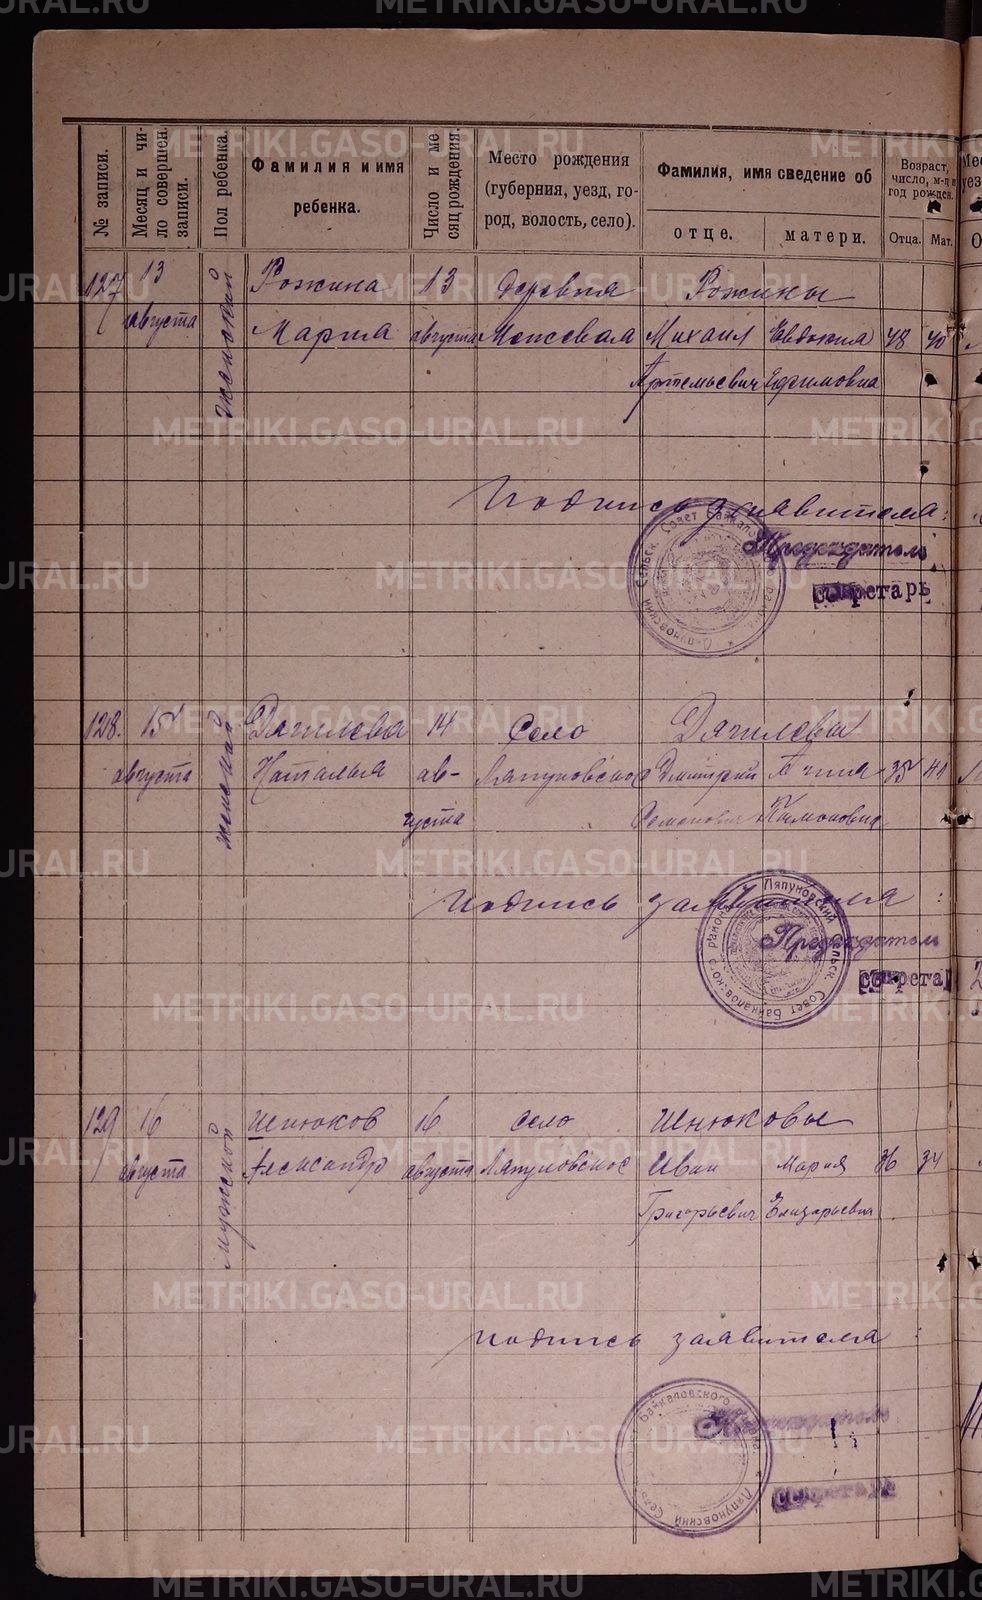 METRIKI.GASO-URAL.RU
№ записи.
Месяц и чи-
ло совершен.
записи.
Пол ребенка.
Фамилия и имя
ребенка.
Число и ме
сяц рождения.
Место рождения
(губерния, уезд, го-
род, волость, село).
Фамилия, имя сведение об
отце.
матери.
Возраст,
число, м-ц и
год рожден.
Отца.
Мат.
127 13 женский Рожина 13 Деревня Рожины
августа Мария августа Михаил Евдокия 48 40
Артемьевич Ефимовна
Подпись заявителя:
Председатель
секретарь
128. 15 женский Дягилева 14 Село Дягилевы
августа Наталья ав- Ляпуновское Дмитрий Анна 35 41
густа Семенович
Подпись заявителя:
Ляпуновский Сельск. Совет Байкаловского района
Председатель
секретар
129 16 мужской Шнюков 16 село Шнюковы
августа Александр августа Ляпуновское Иван Мария 36 34
Григорьевич Елизарьевна
подпись заявителя:
Байкаловского района. Ляпуновский Сель
Председатель
секретарь